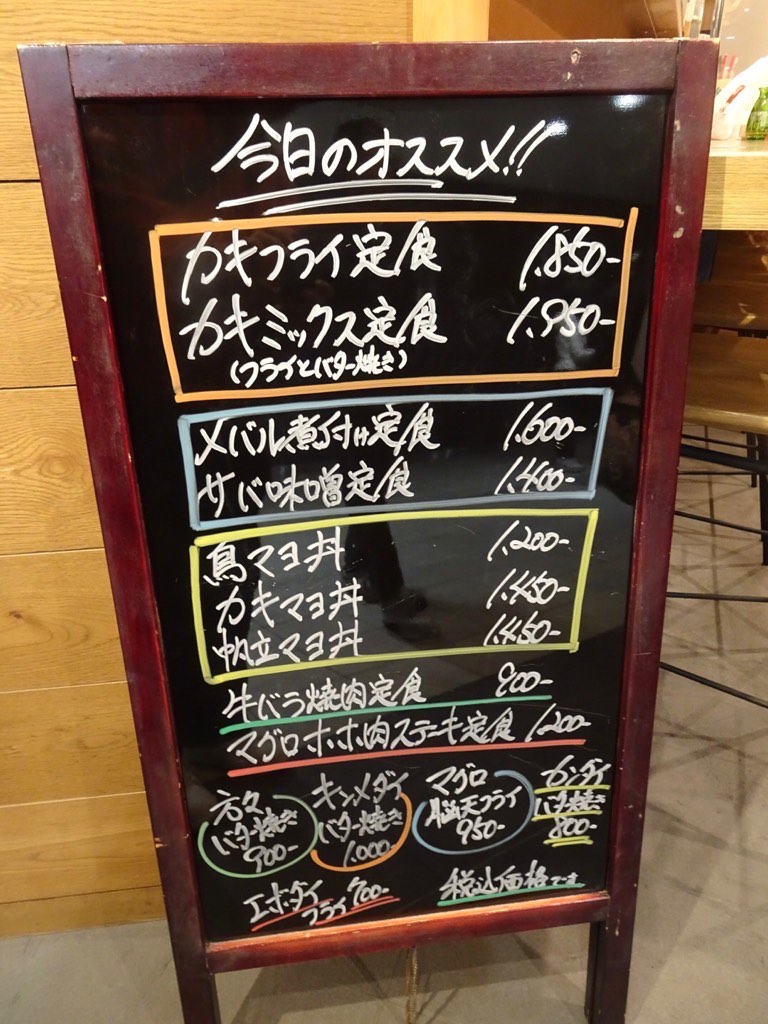 今日のオススメ!!
カキフライ定食 1.850-
カキミックス定食 1.950-
(フライとバター焼き)
メバル煮付け定食 1.600-
サバ味噌定食 1.400-
鳥マヨ丼 1.200-
カキマヨ丼 1.450-
帆立マヨ丼 1.450-
牛バラ焼肉定食 900-
マグロホホ肉ステーキ定食 1.200-
バター焼き
900-
キンメダイ
バター焼き
1.000-
マグロ
脳天フライ
950-
カンダイ
バタ焼き
800-
エボダイ
フライ 700-
税込価格です